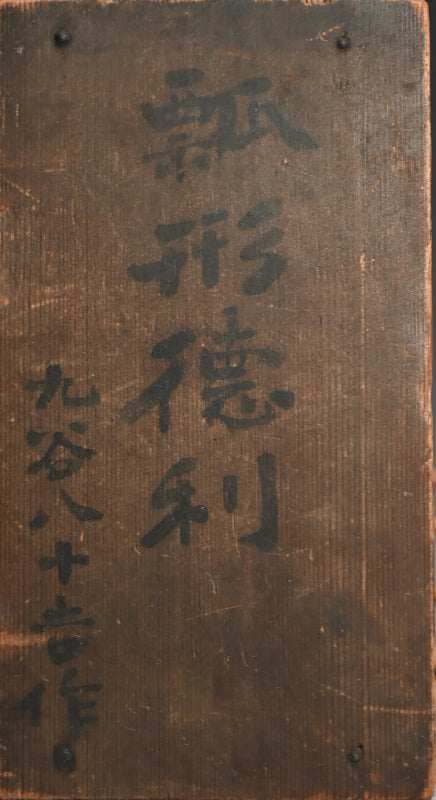 瓢形徳利
九谷八十吉作